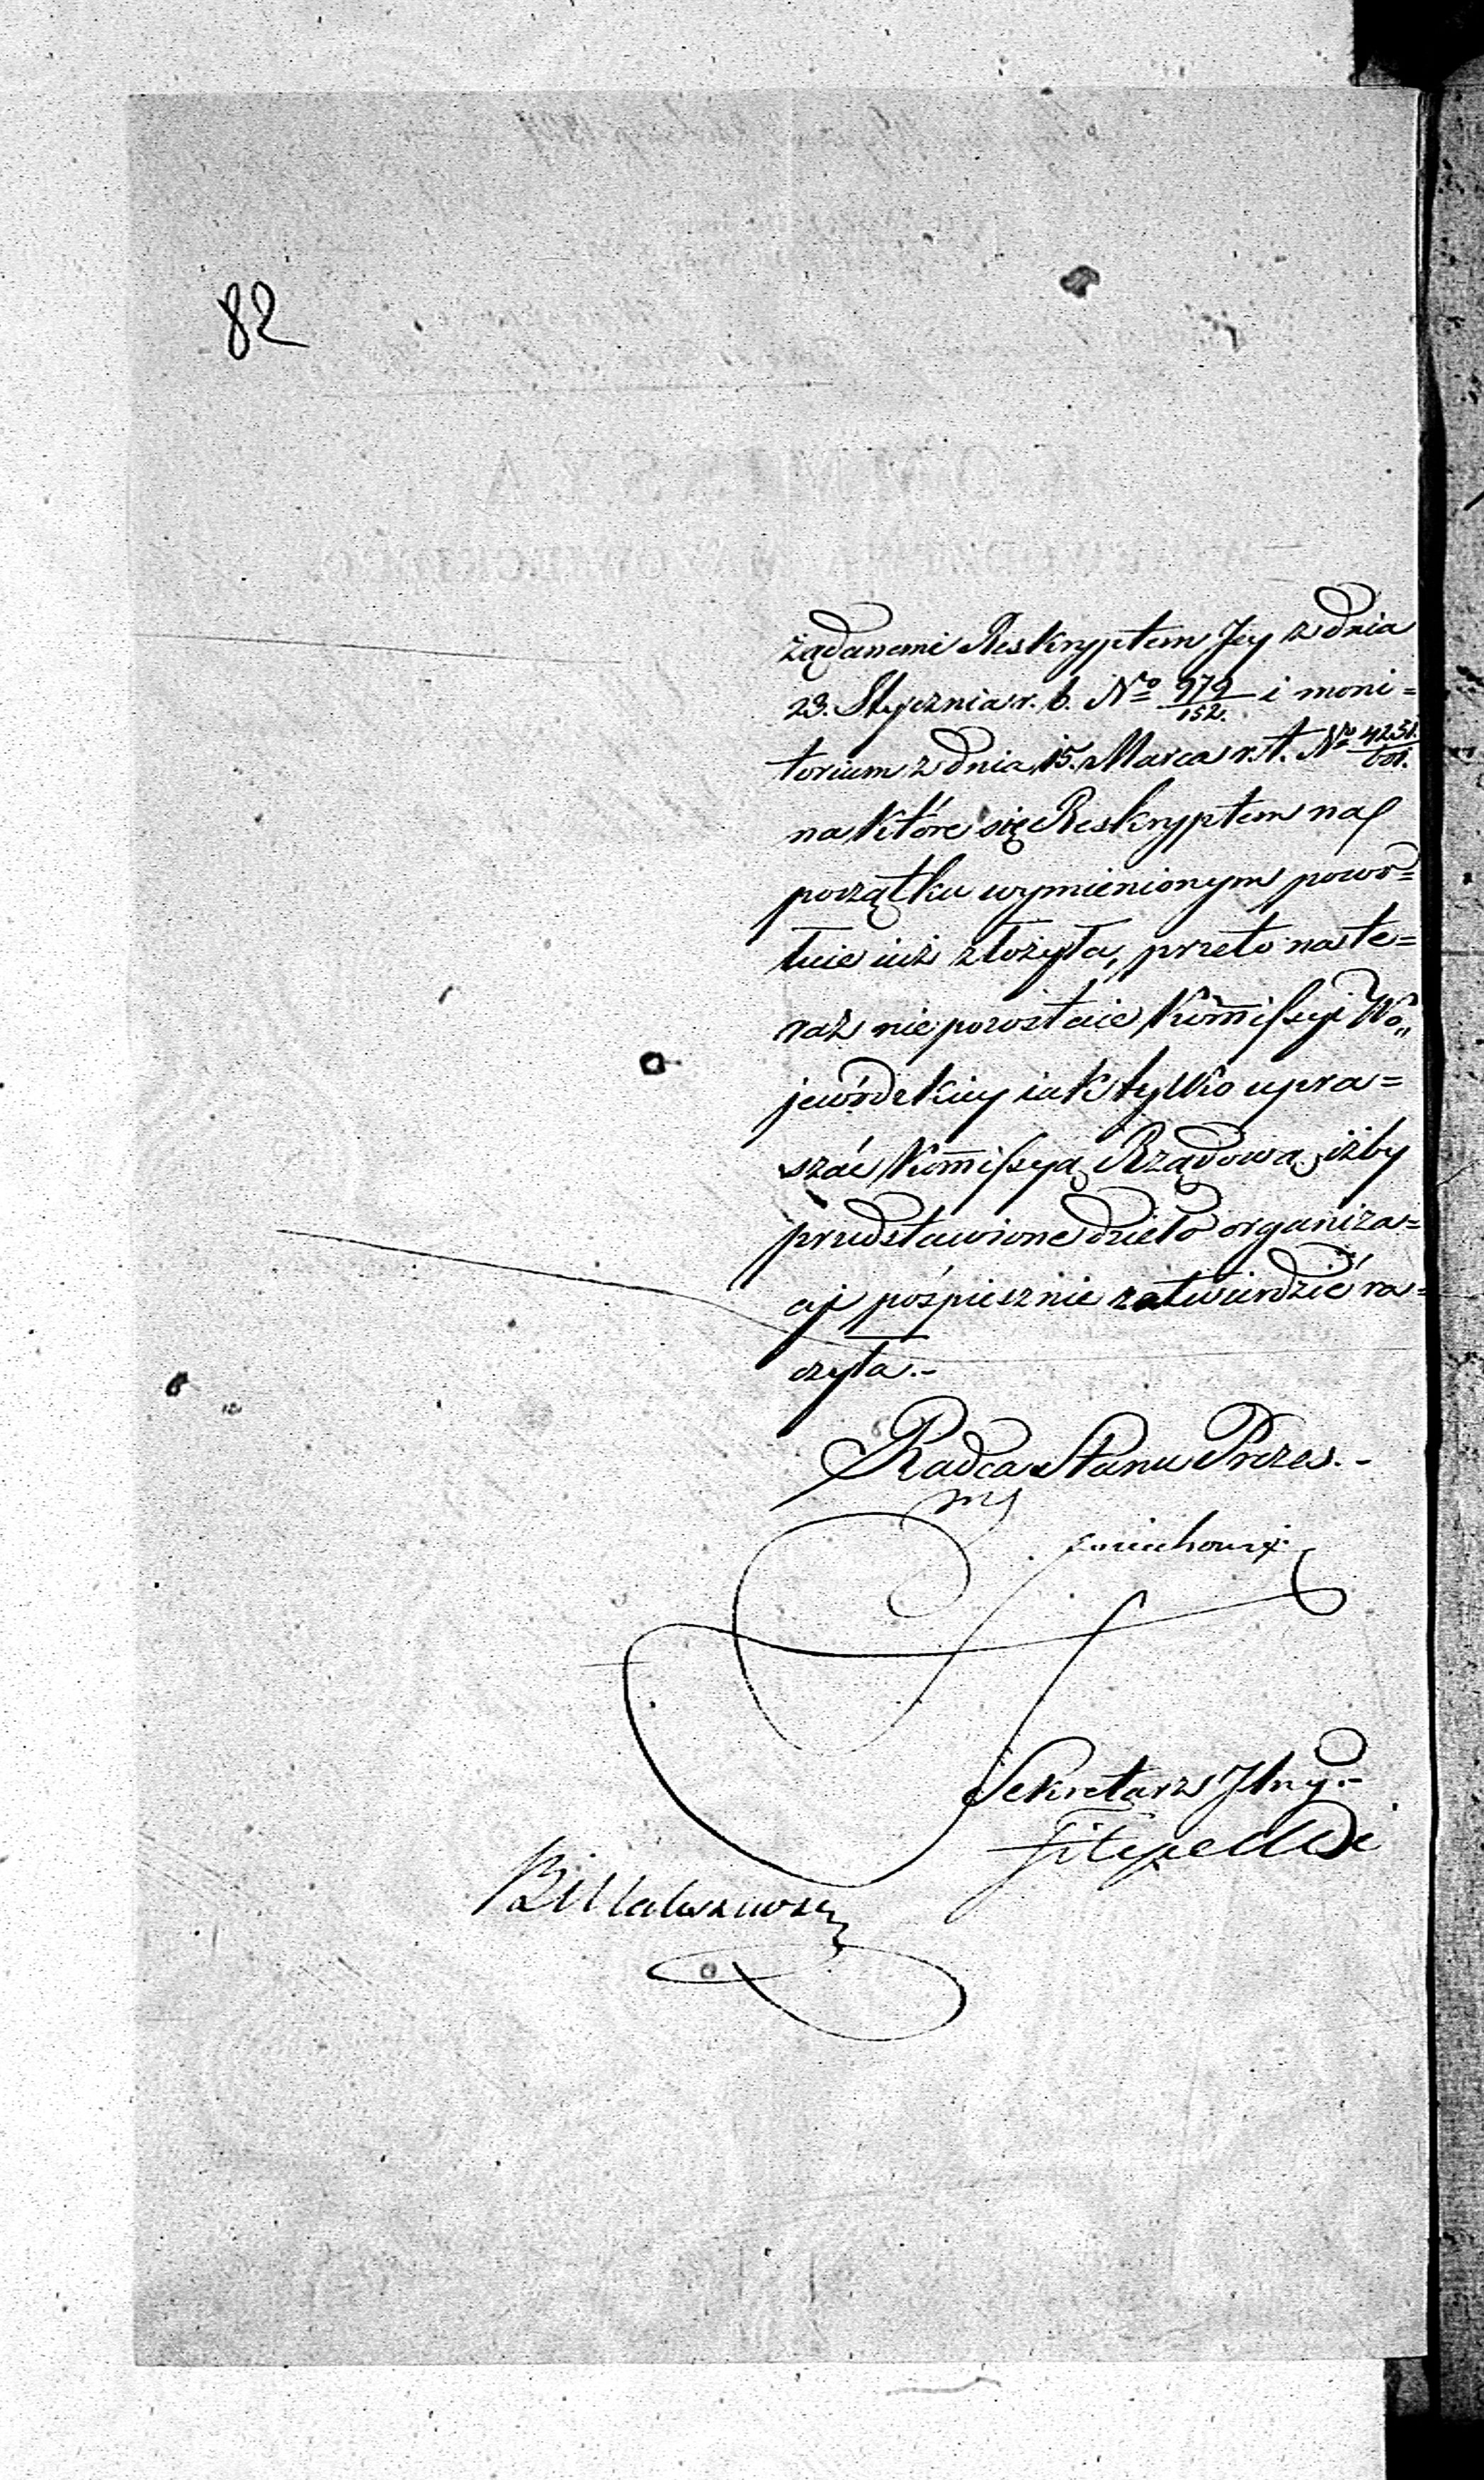 82
żądanemi Reskryptem Jey z dnia
23. Stycznia r. b. No 979/152. i moni=
torium z dnia 15. Marca r. t. No 4251./601.
na które się Reskryptem na
początku wymienionym powo=
łuie iuż złożyła, przeto na te=
raz nie pozostaie Kom̄issyi Wo„
jewódzkiey iak tylko upra=
szać Kom̄issyą Rządową, iżby
przedstawione dzieło organiza=
cyi pośpiesznie zatwierdzić ra=
czyła.-
Radca Stanu Prezes.-
Sekretarz Jlny.-
Filipecki